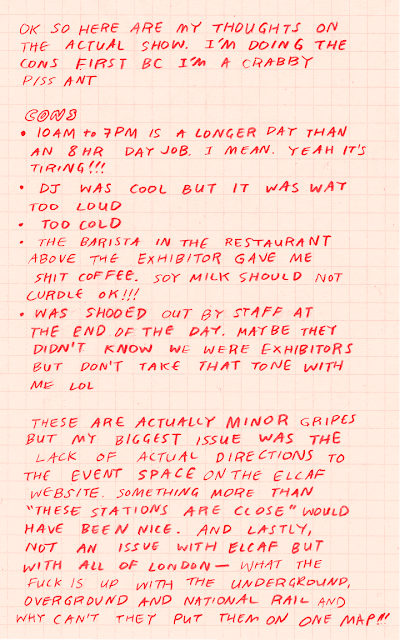 OK SO HERE ARE MY THOUGHTS ON
THE ACTUAL SHOW. I'M DOING THE
CONS FIRST BC I'M A CRABBY
PISS ANT
CONS
• 10AM to 7PM IS A LONGER DAY THAN
AN 8HR DAY JOB. I MEAN. YEAH IT'S
TIRING!!!
• DJ WAS COOL BUT IT WAS WAY
TOO LOUD
• TOO COLD
• THE BARISTA IN THE RESTAURANT
ABOVE THE EXHIBITOR GAVE ME
SHIT COFFEE. SOY MILK SHOULD NOT
CURDLE OK!!!
• WAS SHOOED OUT BY STAFF AT
THE END OF THE DAY. MAYBE THEY
DIDN'T KNOW WE WERE EXHIBITORS
BUT DON'T TAKE THAT TONE WITH
ME LOL
THESE ARE ACTUALLY MINOR GRIPES
BUT MY BIGGEST ISSUE WAS THE
LACK OF ACTUAL DIRECTIONS TO
THE EVENT SPACE ON THE ELCAF
WEBSITE. SOMETHING MORE THAN
"THESE STATIONS ARE CLOSE" WOULD
HAVE BEEN NICE. AND LASTLY,
NOT AN ISSUE WITH ELCAF BUT
WITH ALL OF LONDON — WHAT THE
FUCK IS UP WITH THE UNDERGROUND,
OVERGROUND AND NATIONAL RAIL AND
WHY CAN'T THEY PUT THEM ON ONE MAP!!!